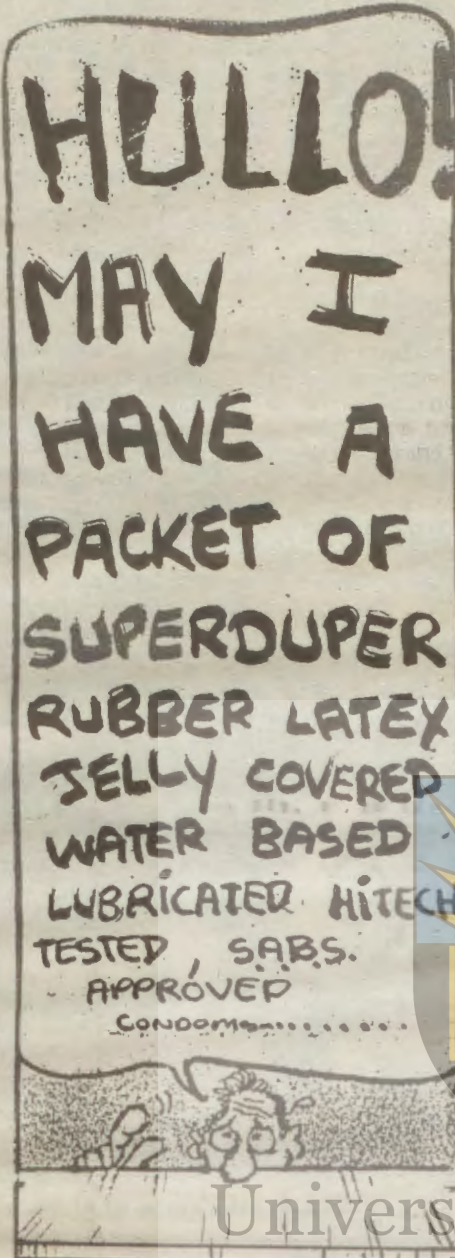 HULLO!
MAY I
HAVE A
PACKET OF
SUPERDUPER
RUBBER LATEX
JELLY COVERED
WATER BASED
LUBRICATED HITECH
TESTED, S.A.B.S.
APPROVED
CONDOMS..........
Univers